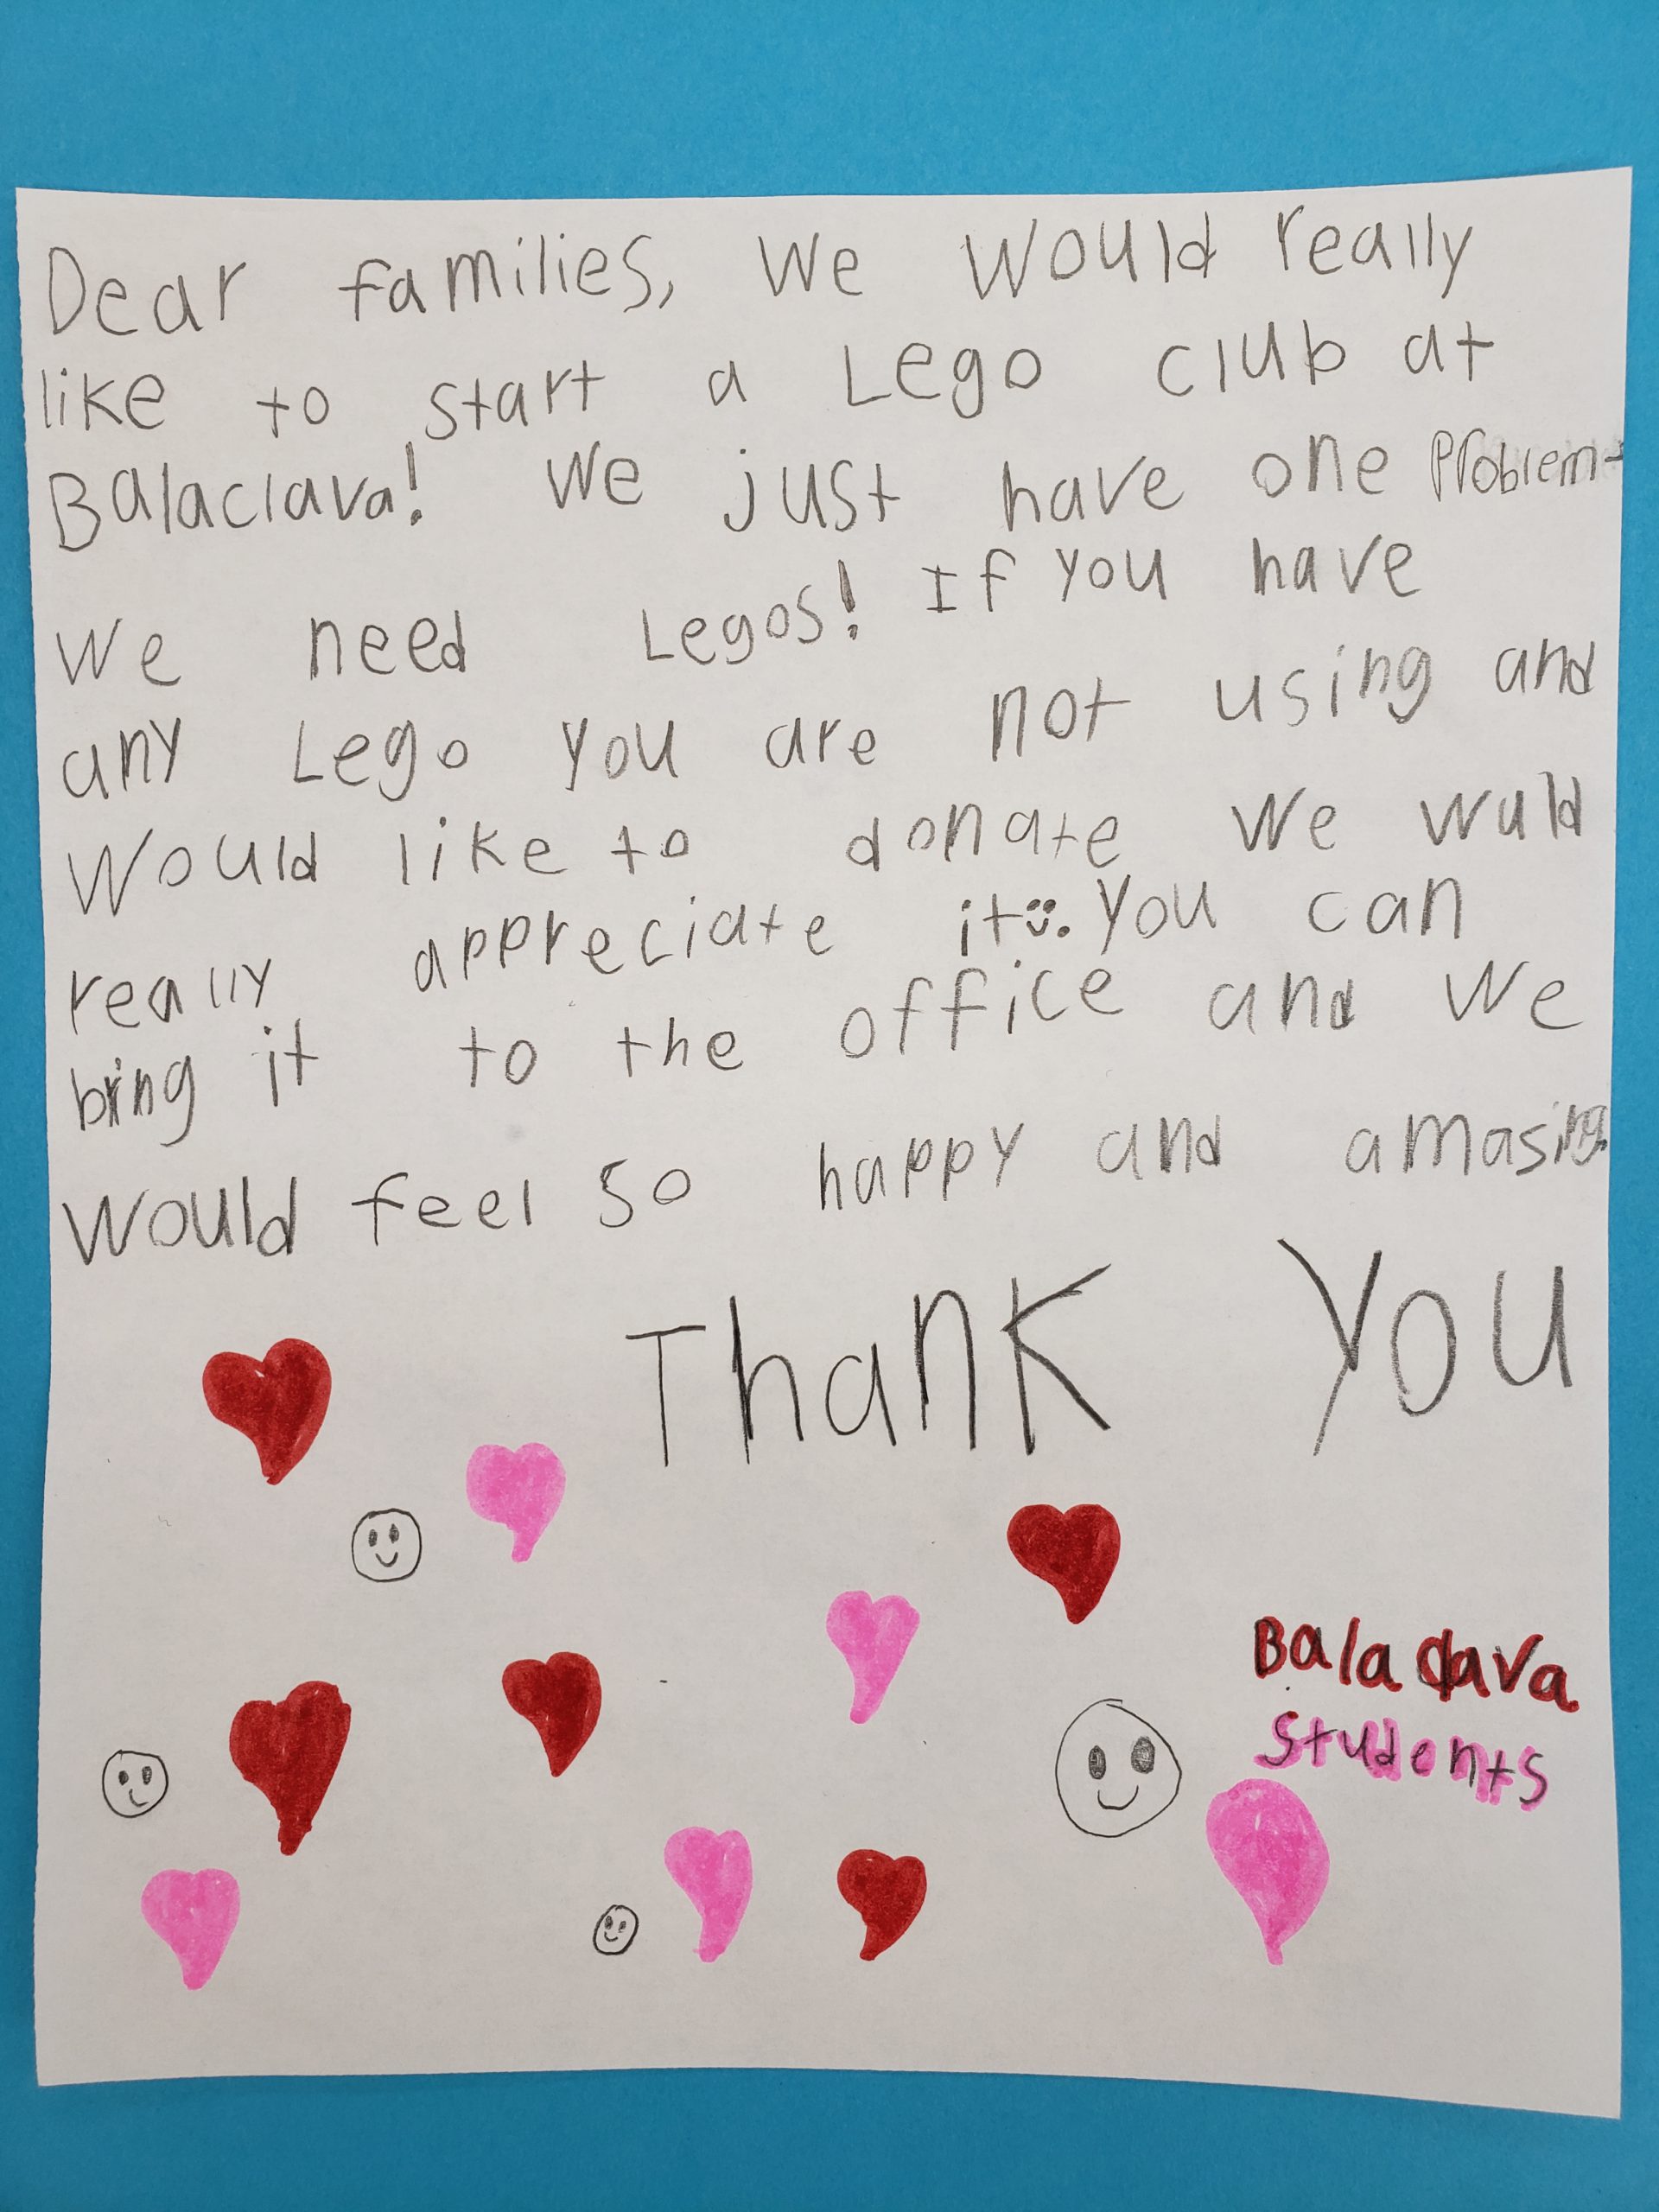 Dear families, We Would really
like to start a Lego club at
Balaclava! We just have one Problem-
We need Legos! If you have
any Lego you are not using and
Would like to donate We wuld
really appreciate it. You can
bring it to the office and We
Would feel so happy and amasing.
Thank You
Balaclava
students